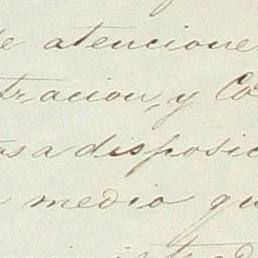 de atencione
tracion, y Co
os a disposic
medio qu